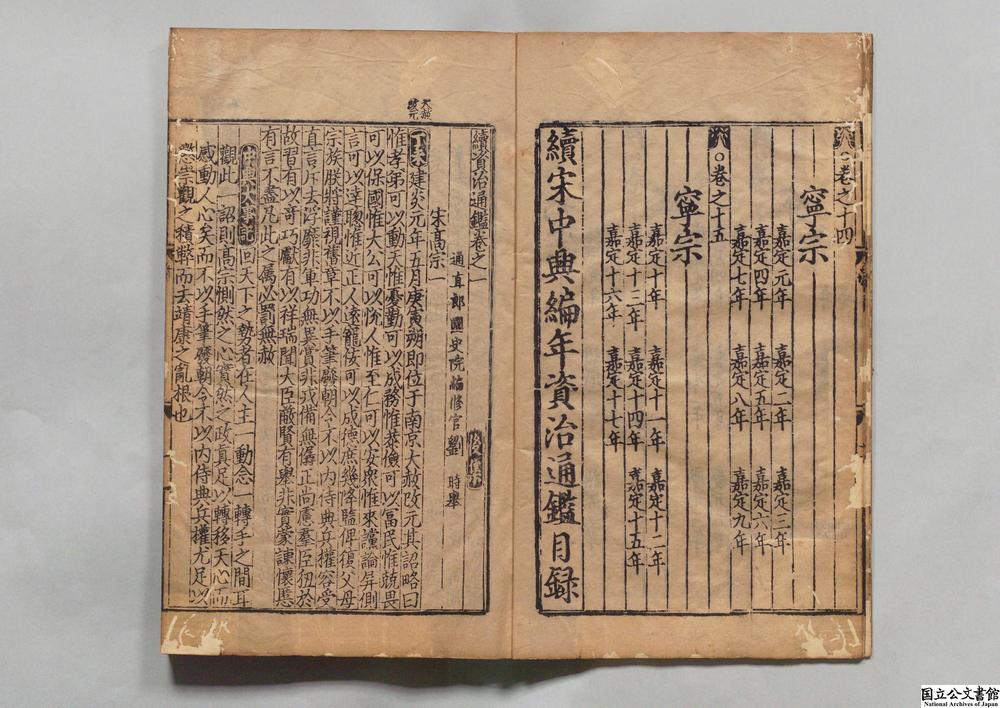 ○卷之十四
寧宗
嘉定元年 嘉定二年 嘉定三年
嘉定四年 嘉定五年 嘉定六年
嘉定七年 嘉定八年 嘉定九年
○卷之十五
寧宗
嘉定十年 嘉定十一年 嘉定十二年
嘉定十三年 嘉定十四年 嘉定十五年
嘉定十六年 嘉定十七年
續宋中興編年資治通鑑目録
大赦
改元
續資治通鑑卷之一
通直郎國史院編修官劉 時舉
宋高宗一
丁未建炎元年五月庚寅朔即位于南京大赦改元其詔略曰
惟孝弟可以動天惟憂勤可以成務惟恭儉可以富民惟兢畏
可以保國惟大公可以悅人惟至仁可以安衆惟來讜論昇側
言可以達聰惟近正人遠寵佞可以成德庶幾降臨俾復父母
宗族朕將謹視舊章不以手筆廢朝令不以内侍典兵權容受
直言斥去浮靡非軍功無異賞非戎備無僝工尚慮羣臣狃於
故習有以奇巧獻有以祥瑞聞大臣蔽賢有舉非實臺諫懷慝
有言不盡凡此之屬必罰無赦
中興大事記 回天下之勢者在人主一動念一轉手之間耳
觀此一詔則高宗惻然之心實然之政眞足以轉移天心而
感動人心矣而不以手筆廢朝令不以内侍典兵權尤足以
懲崇觀之積弊而去靖康之亂根也
国立公文書館
National Archives of Japan